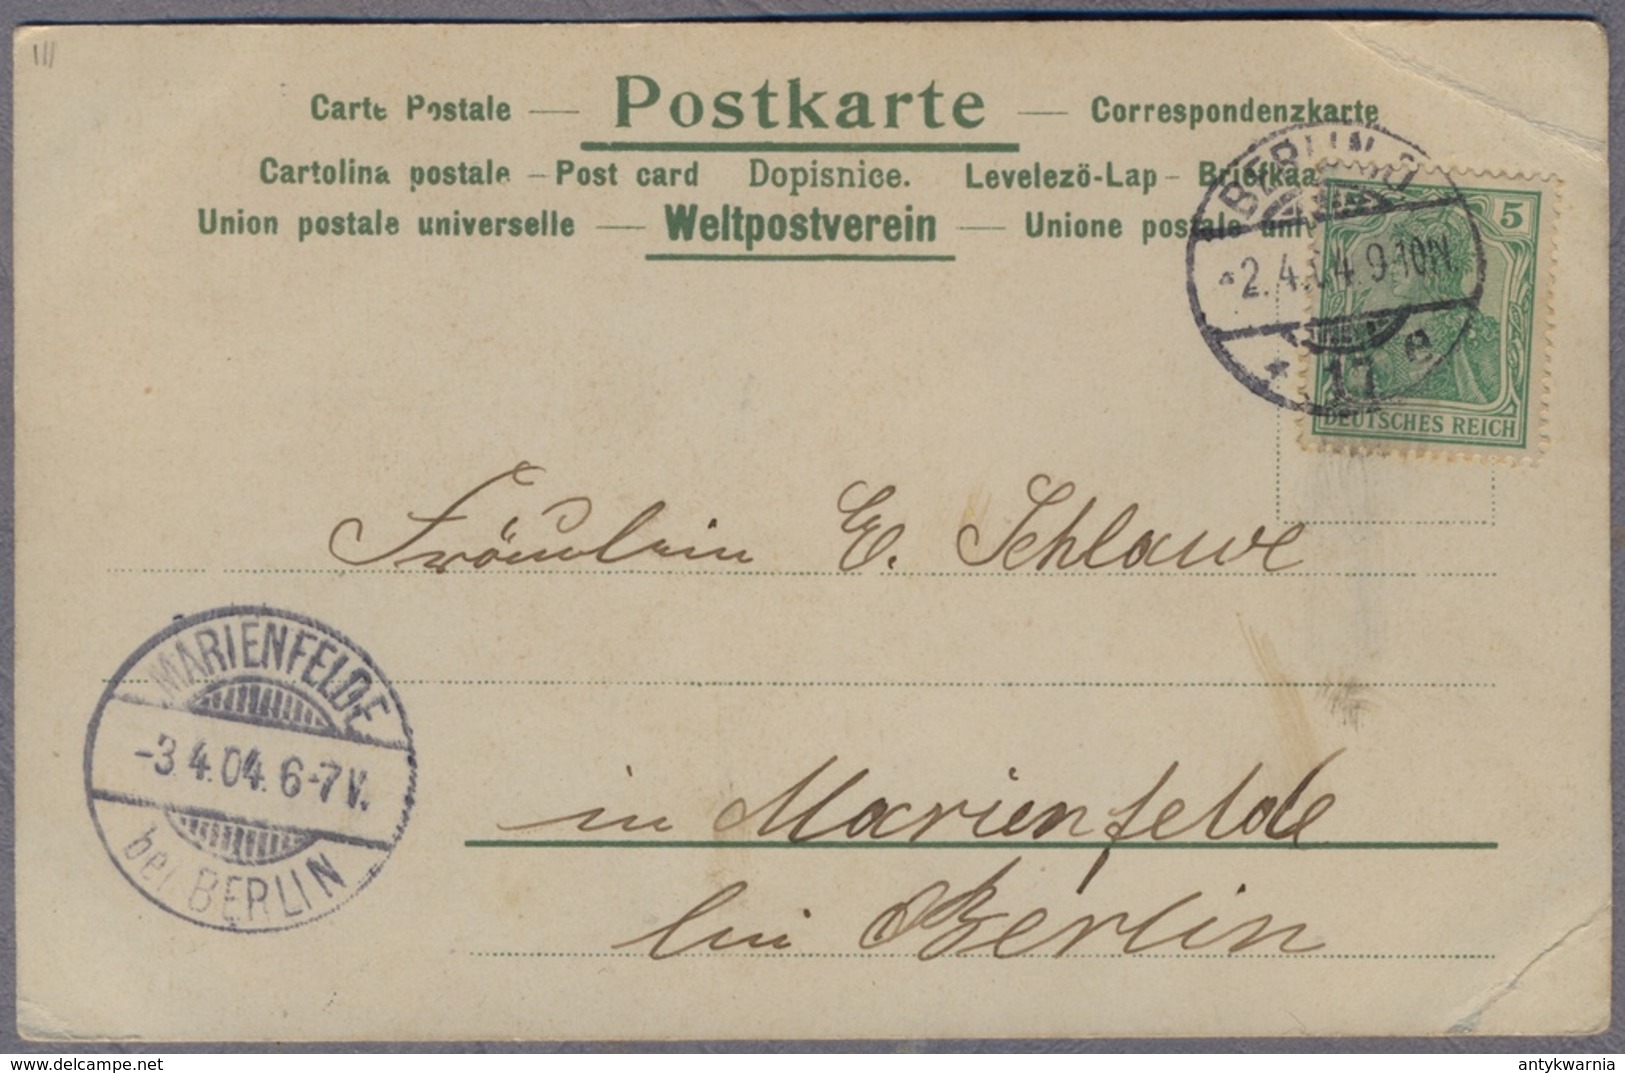 Carte Postale — Postkarte — Correspondenzkarte
Cartolina postale – Post card Dopisnice. Levelezö-Lap – Briefkaa
Union postale universelle — Weltpostverein — Unione postale univ
BERLIN
2.4.04. 9-10N.
* 17 e
5
DEUTSCHES REICH
Fräulein E. Schlawe
MARIENFELDE
-3.4.04. 6-7V.
bei BERLIN
in Marienfelde
bei Berlin
delcampe.net
antykwarnia